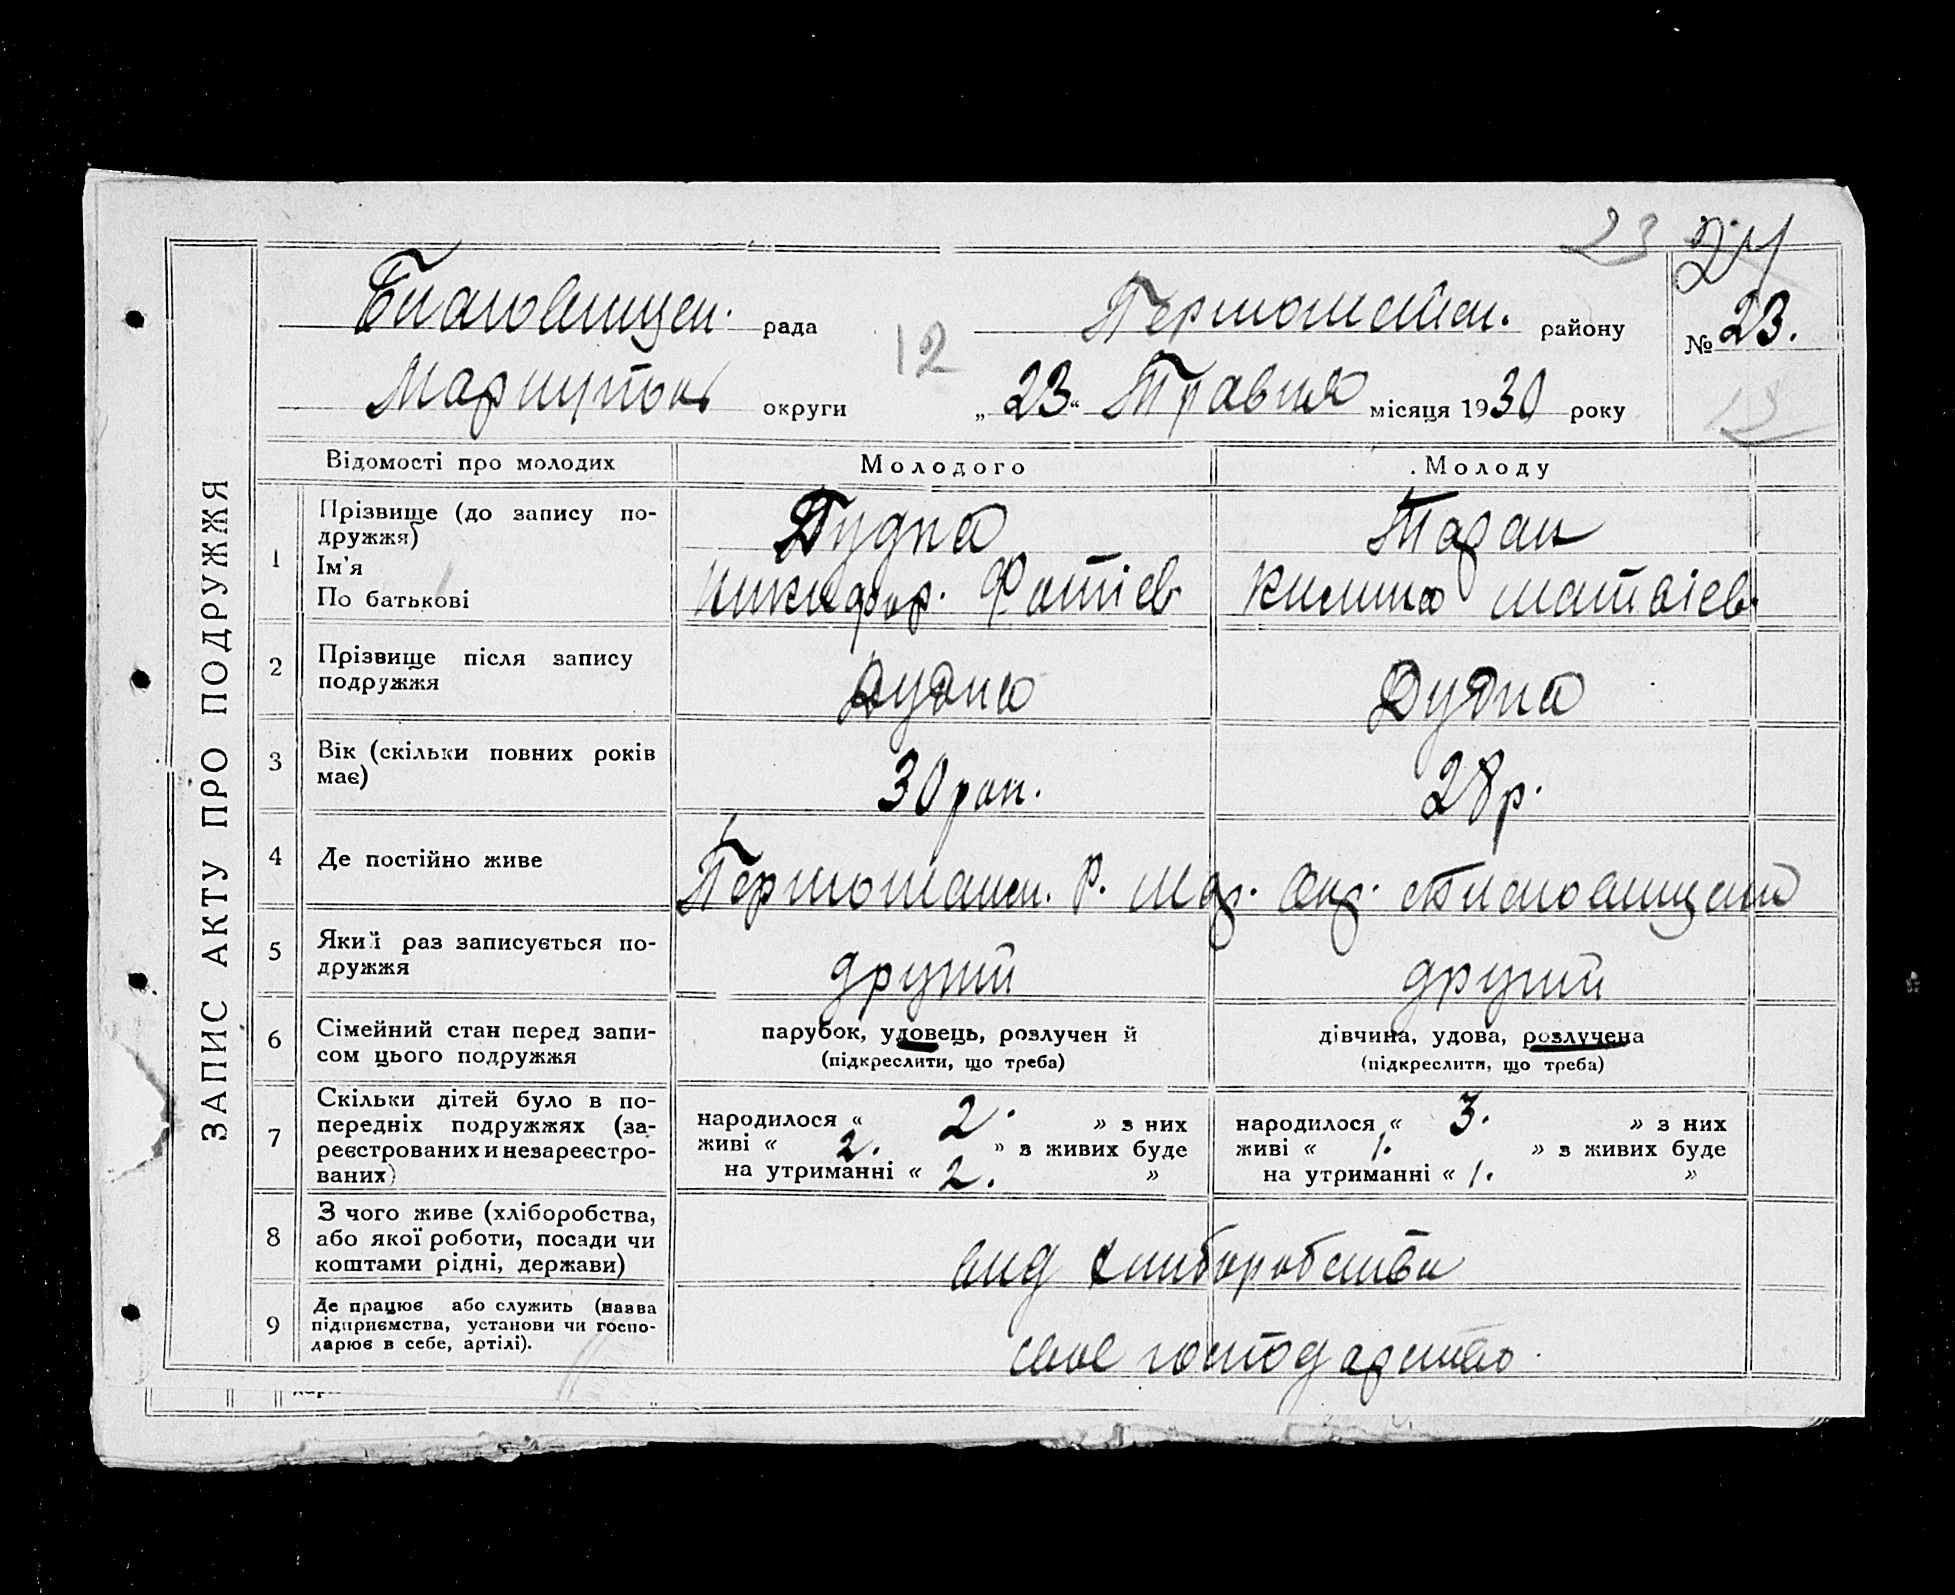 23 24
Благовищен. рада Першотравн. району № 23.
12
Мариупольс округи „23“ Травня місяця 1930 року
ЗАПИС АКТУ ПРО ПОДРУЖЖЯ
Відомості про молодих Молодого Молоду
1 Прізвище (до запису подружжя) Дудка Таран
Ім'я
По батькові Никифор. Фотіев Килина Матвіев.
2 Прізвище після запису подружжя Дудка Дудка
3 Вік (скільки повних років має) 30 рок. 28 р.
4 Де постійно живе р. Мар. Окр.
5 Який раз записується подружжя другий другий
6 Сімейний стан перед записом цього подружжя парубок, удовець, розлучений дівчина, удова, розлучена
(підкреслити, що треба) (підкреслити, що треба)
7 Скільки дітей було в попередніх подружжях (зареєстрованих и незареєстрованих)
народилося « 2. » з них народилося « 3. » з них
живі « 2. » з живих буде живі « 1. » з живих буде
на утриманні « 2. » на утриманні « 1. »
8 З чого живе (хліборобства, або якої роботи, посади чи коштами рідні, держави) вид хлиборобства
9 Де працює або служить (назва підприємства, установи чи господарює в себе, артілі). своє господарство.